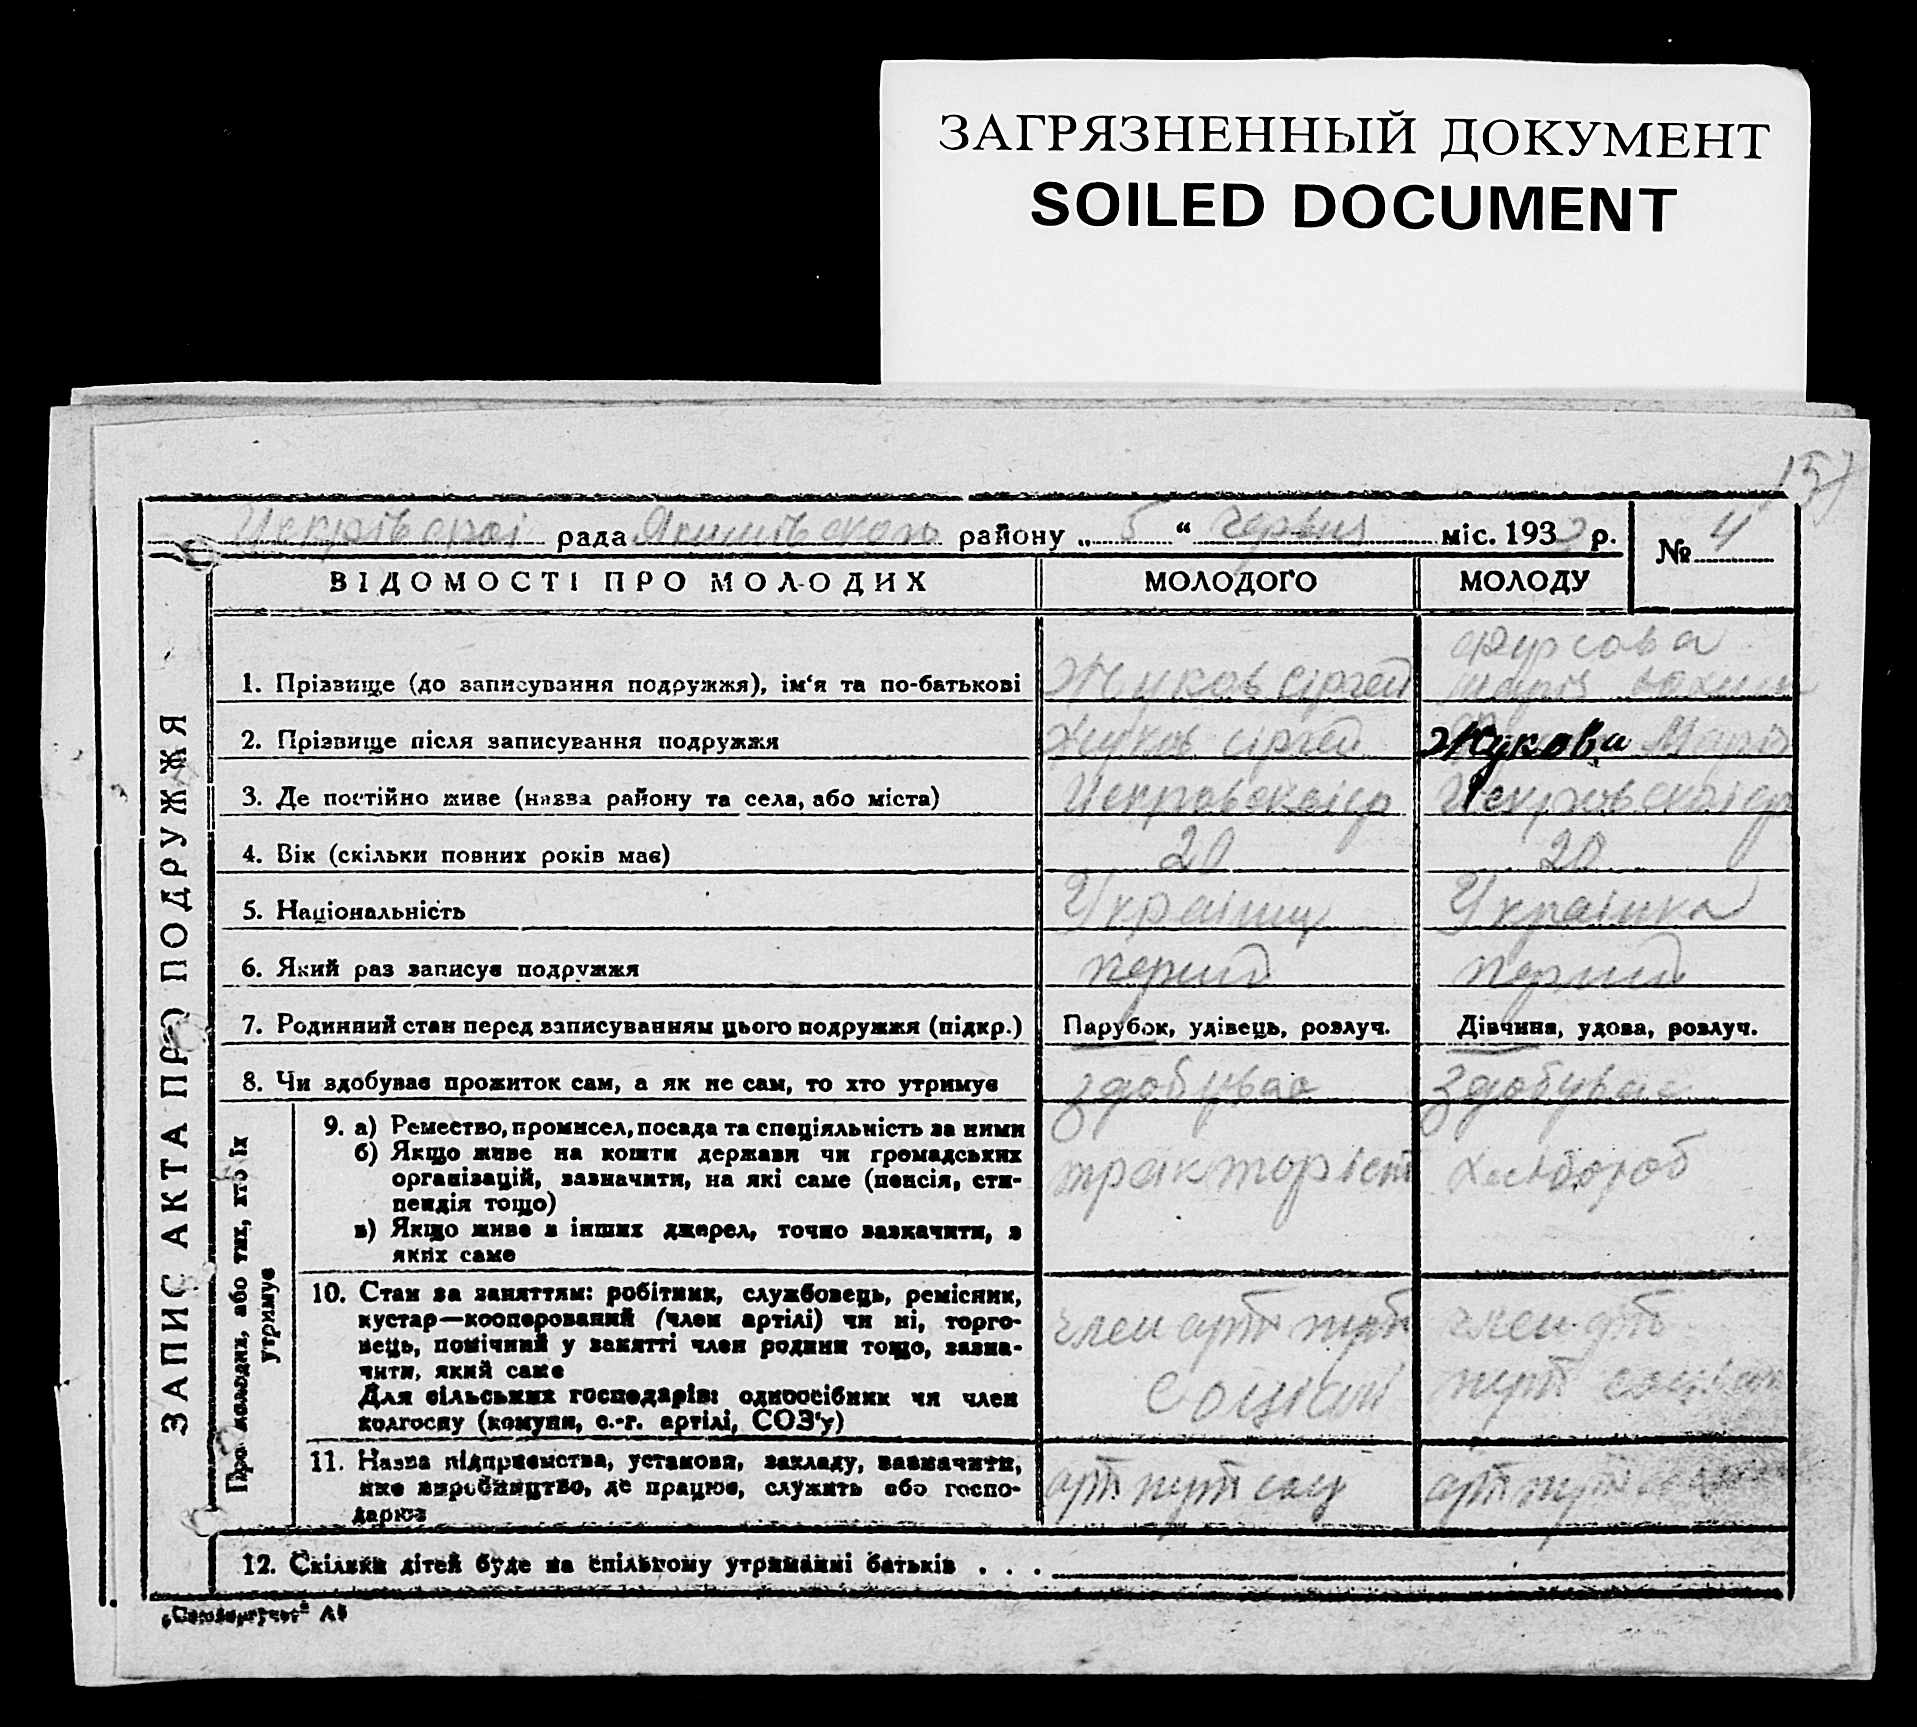 ЗАГРЯЗНЕННЫЙ ДОКУМЕНТ
SOILED DOCUMENT
рада району „ 5 “ червня міс. 193 р.
№ 4
ЗАПИС АКТА ПРО ПОДРУЖЖЯ
ВІДОМОСТІ ПРО МОЛОДИХ МОЛОДОГО МОЛОДУ
Фурсова
1. Прізвище (до записування подружжя), ім‘я та по-батькові Жуков Сіргей Марія
2. Прізвище після записування подружжя Жуков Сіргей Жукова Марія
3. Де постійно живе (назва району та села, або міста)
4. Вік (скільки повних років має) 20 20
5. Національність Українц Українка
6. Який раз записує подружжя перший перший
7. Родинний стан перед записуванням цього подружжя (підкр.) Парубок, удівець, розлуч. Дівчина, удова, розлуч.
8. Чи здобуває прожиток сам, а як не сам, то хто утримує здобуває здобуває
Про молодих, або тих, хто їх утримує
9. а) Ремество, промисел, посада та спеціяльність за ними
б) Якщо живе на кошти держави чи громадських
організацій, зазначити, на які саме (пенсія, сти-
пендія тощо)
в) Якщо живе з інших джерел, точно зазначити, з
яких саме
тракторіст хлібороб
10. Стан за заняттям: робітник, службовець, ремісник,
кустар—кооперований (член артілі) чи ні, торго-
вець, помічний у занятті член родини тощо, зазна-
чити, який саме
Для сільських господарів: одноосібник чи член
колгоспу (комуни, с.-г. артілі, СОЗ‘у)
член арт член
11. Назва підприємства, установи, закладу, зазначити,
яке виробництво, де працює, служить або госпо-
дарює
арт арт
12. Скільки дітей буде на спільному утриманні батьків . . .